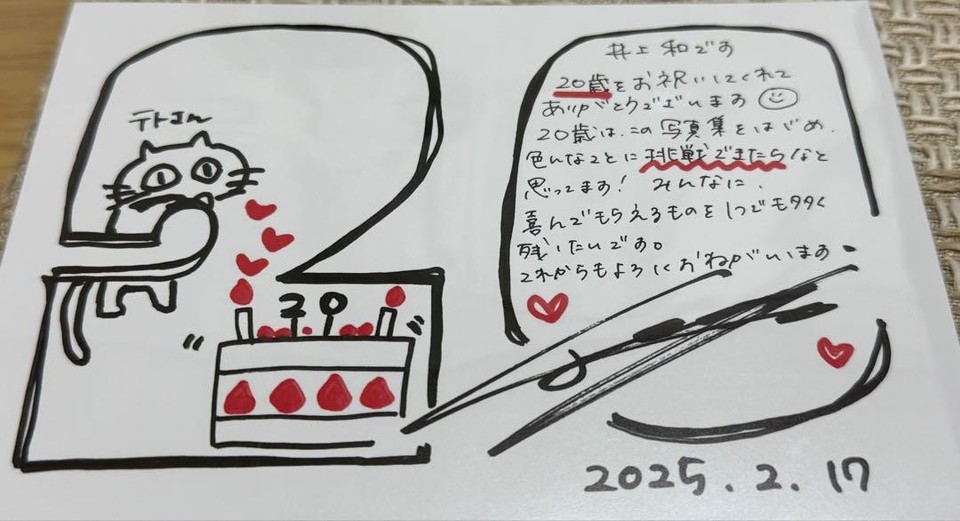 テトさん
20
井上 和です
20歳をお祝いしてくれて
ありがとうございます
20歳は、この写真集をはじめ、
色んなことに挑戦できたらなと
思ってます! みんなに、
喜んでもらえるものを1つでも多く
残したいです。
これからもよろしくおねがいします
2025.2.17